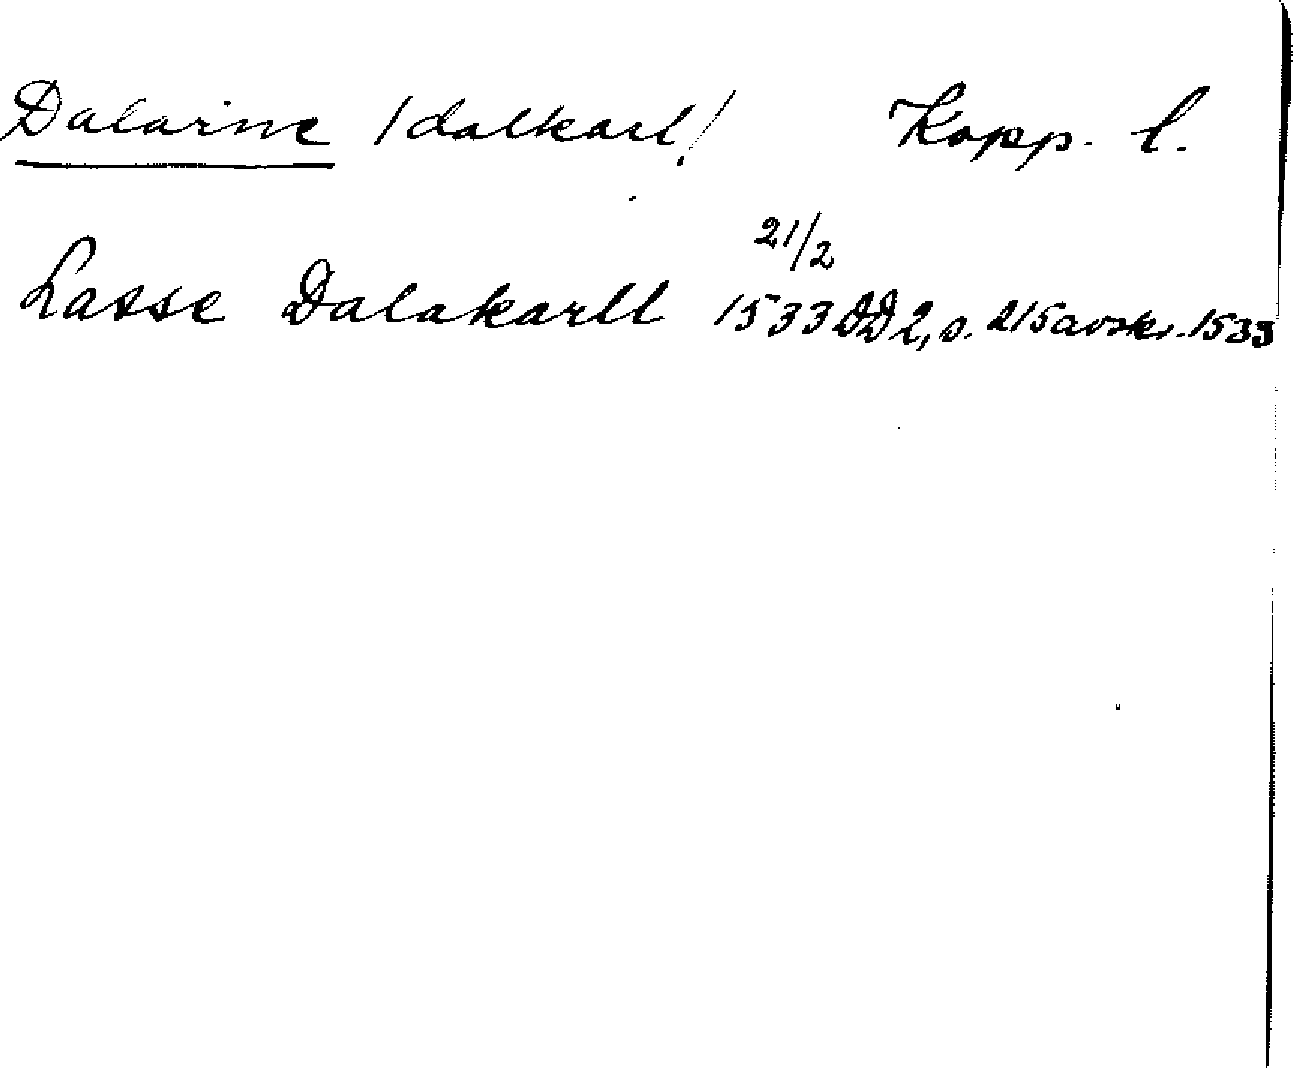 Dalarne /dalkarl,/ Kopp. l.
Lasse Dalakarll 21/2 1533 DD 2, s. 215 avskr. 1533